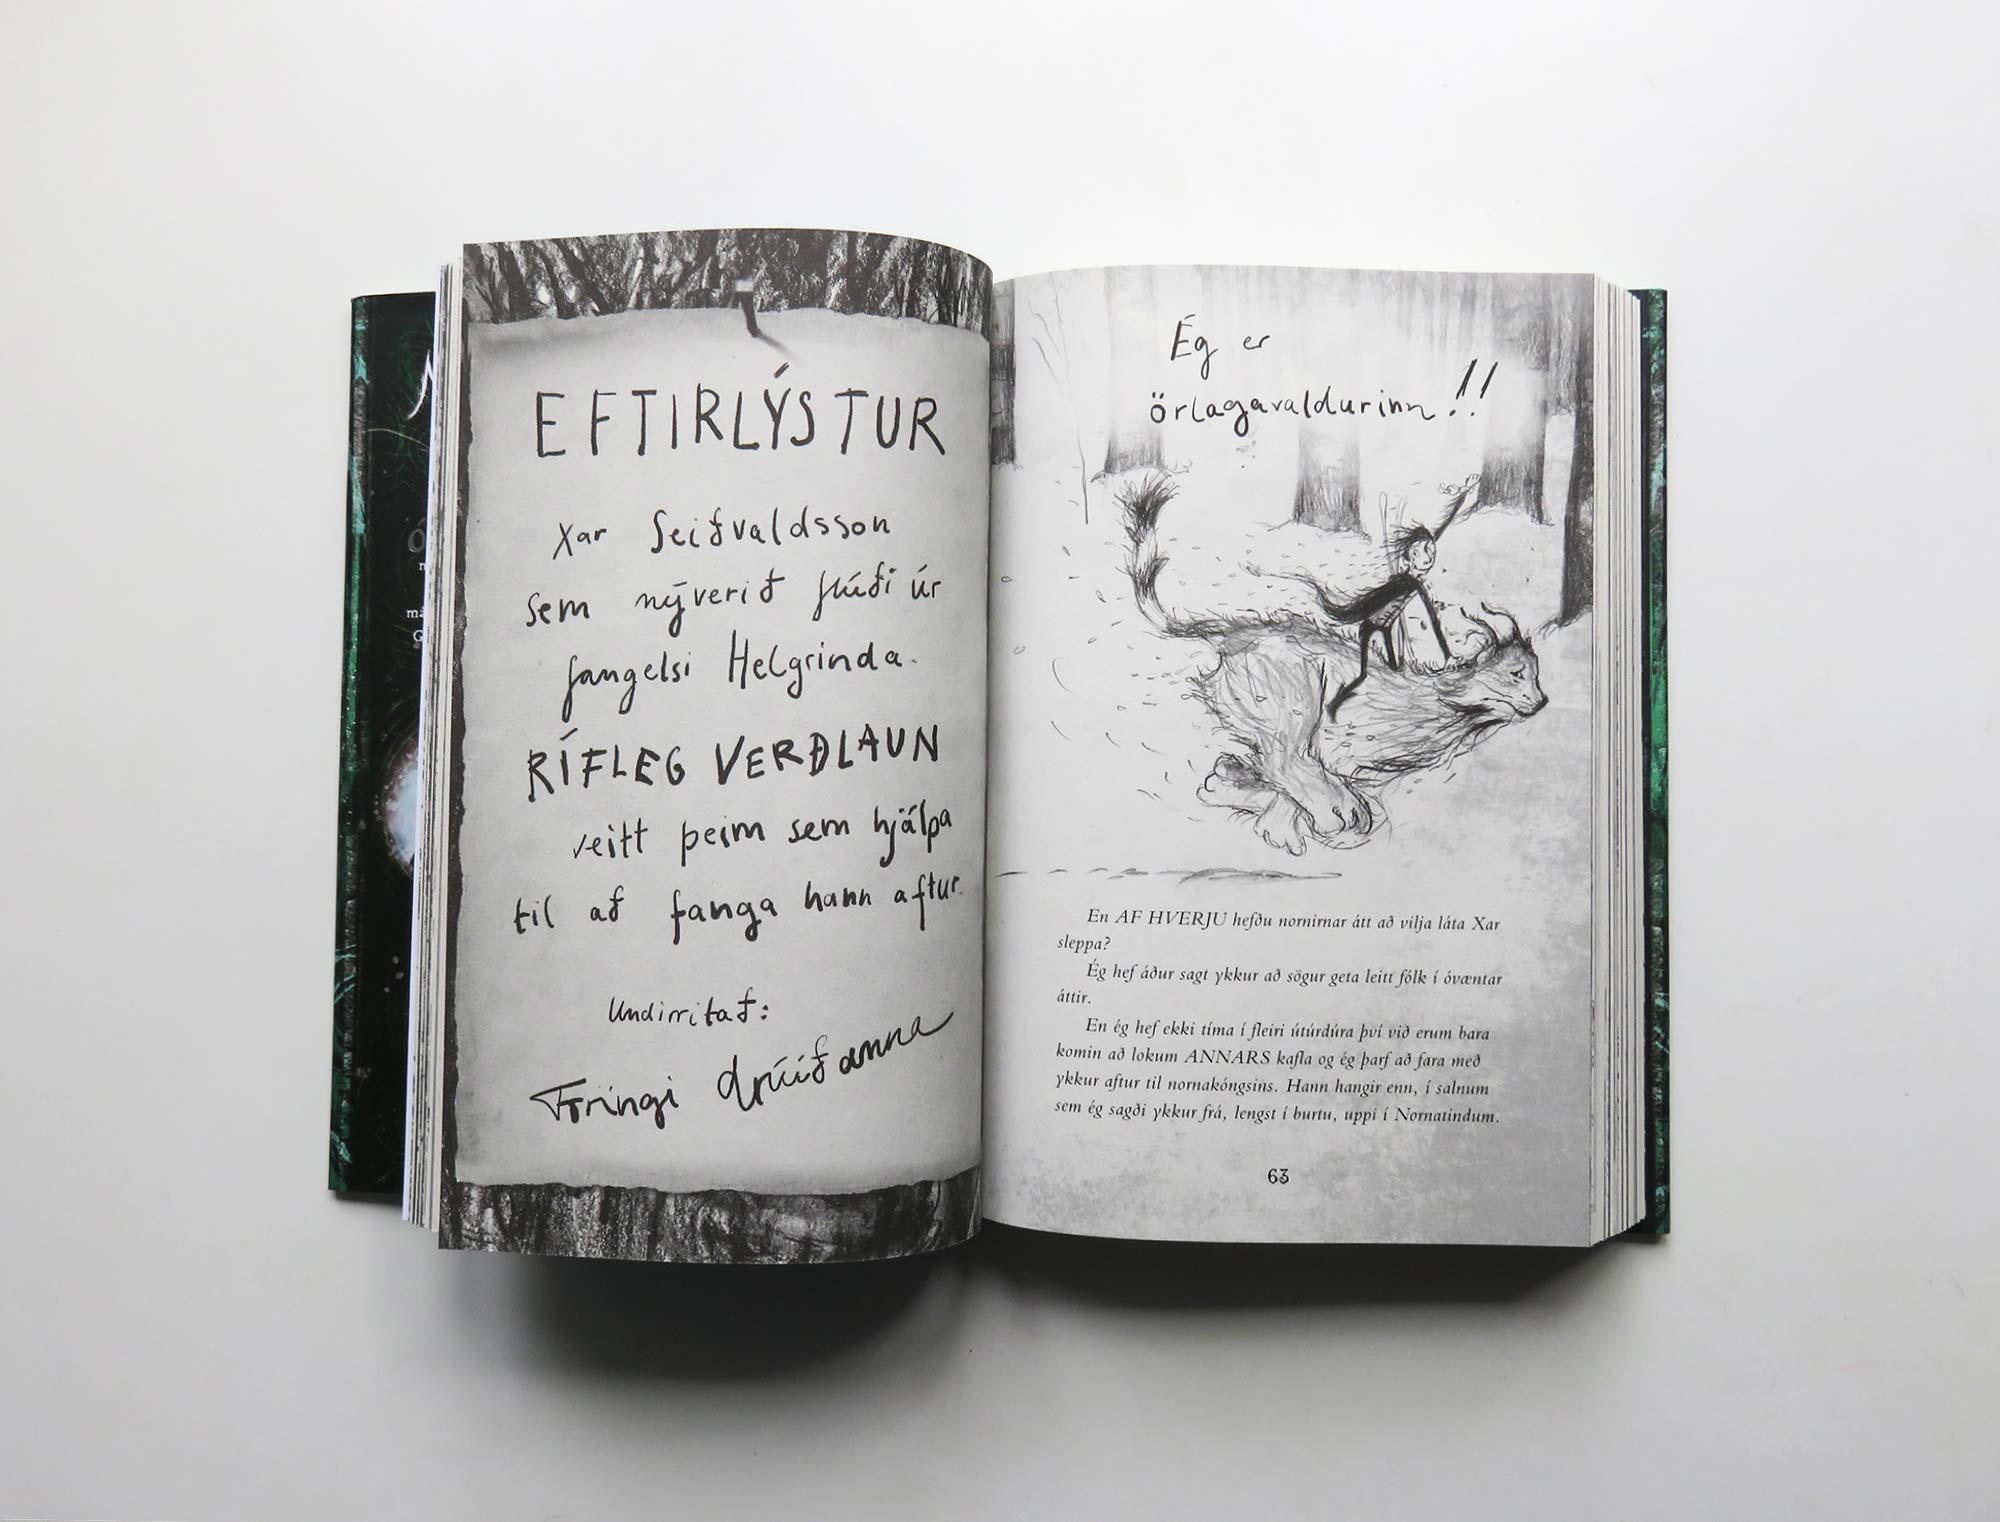 EFTIRLÝSTUR
Xar Seiðvaldsson
sem nýverið flúði úr
fangelsi Helgrinda.
RÍFLEG VERÐLAUN
veitt þeim sem hjálpa
til að fanga hann aftur.
Undirritað:
Foringi drúíðanna
Ég er
örlagavaldurinn!!
En AF HVERJU hefðu nornirnar átt að vilja láta Xar
sleppa?
Ég hef áður sagt ykkur að sögur geta leitt fólk í óvæntar
áttir.
En ég hef ekki tíma í fleiri útúrdúra því við erum bara
komin að lokum ANNARS kafla og ég þarf að fara með
ykkur aftur til nornakóngsins. Hann hangir enn, í salnum
sem ég sagði ykkur frá, lengst í burtu, uppi í Nornatindum.
63